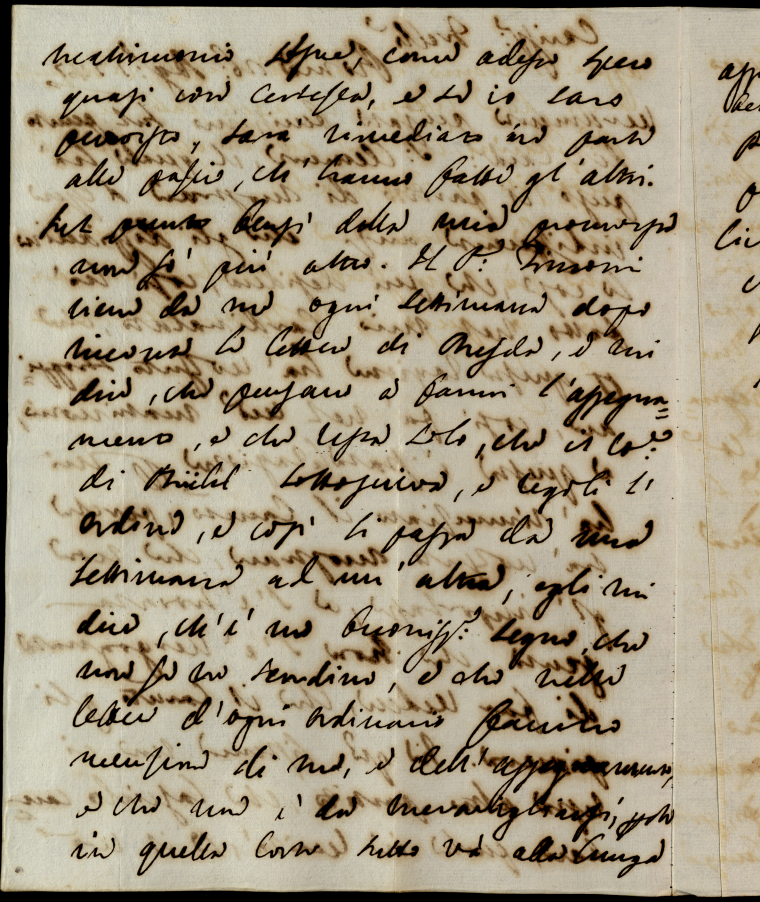 matrimonio segue, come adesso spero
quasi con certezza, e se io sarò
promosso, sarà rimediato in parte
alli passi, ch'hanno fatti gl'altri.
Sul punto della mia promozione
non sò più altro. Il P.
viene da me ogni settimana dopo
ricevute le lettere di Dresda, e mi
dice, che pensano a farmi l'assegna=
mento, e che resta solo, che il Co:
di Brühl sottoscriva, e regoli li
ordini, e così si passa da una
settimana ad un'altra; egli mi
dice, ch'è un buoniss:o segno, che
non se ne scordino, e che nelle
lettere d'ogni ordinario faccino
menzione di me, e dell'assegnamento,
e che non è da meravigliarsi,
in quella Corte tutto và alla lunga